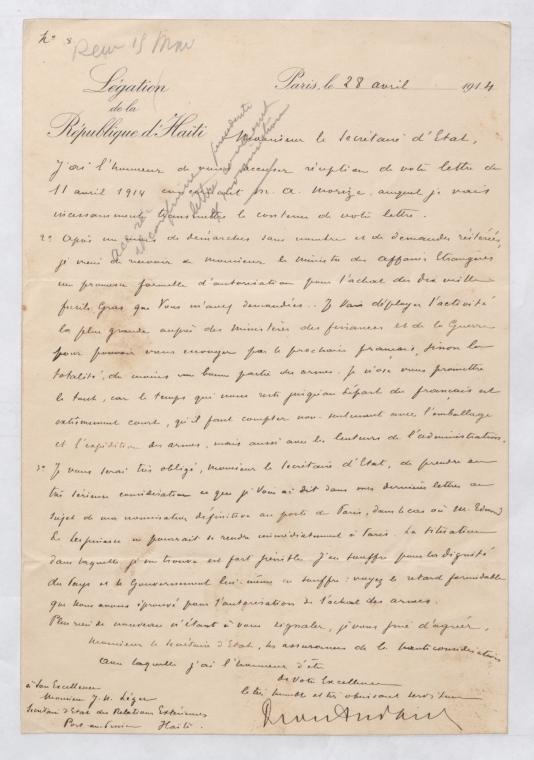 Nº 8
Légation
de la
République d'Haïti
Paris, le 28 avril 1914
Monsieur le Secrétaire d'Etat,
J'ai l'honneur de vous accuser réception de votre lettre du
11 avril 1914 concernant M. A. Morize, auquel je vais
incessamment transmettre le contenu de votre lettre.
2º Après un mois de démarches sans nombre et de demandes réitérées,
je viens de recevoir de Monsieur le Ministre des Affaires Etrangères
une promesse formelle d'autorisation pour l'achat des dix mille
fusils Gras que Vous m'avez demandés. Je vais déployer l'activité
la plus grande auprès des Ministères des finances et de la Guerre
pour pouvoir vous envoyer par le prochain français, sinon la
totalité, du moins une bonne partie des armes. Je n'ose vous promettre
le tout, car le temps qui nous reste jusqu'au départ du français est
extrêmement court, qu'il faut compter non seulement avec l'emballage
et l'expédition des armes, mais aussi avec les lenteurs de l'administration.
3º Je vous serai très obligé, Monsieur le Secrétaire d'Etat, de prendre en
très sérieuse considération ce que je Vous ai dit dans mes dernières lettres au
sujet de ma nomination définitive au poste de Paris, dans le cas où M. Edmond
Lespinasse ne pourrait se rendre immédiatement à Paris. La situation
dans laquelle je me trouve est fort pénible. J'en souffre pour la dignité
du pays et le Gouvernement lui-même en souffre: voyez le retard formidable
que nous avons éprouvé pour l'autorisation de l'achat des armes.
Plus rien de nouveau n'étant à vous signaler, je vous prie d'agréer,
Monsieur le Secrétaire d'Etat, les assurances de la haute considération
avec laquelle j'ai l'honneur d'être
de Votre Excellence
le très humble et très obéissant serviteur
à Son Excellence
Monsieur J. N. Léger
Secrétaire d'Etat des Relations Extérieures
Port-au-Prince Haïti.